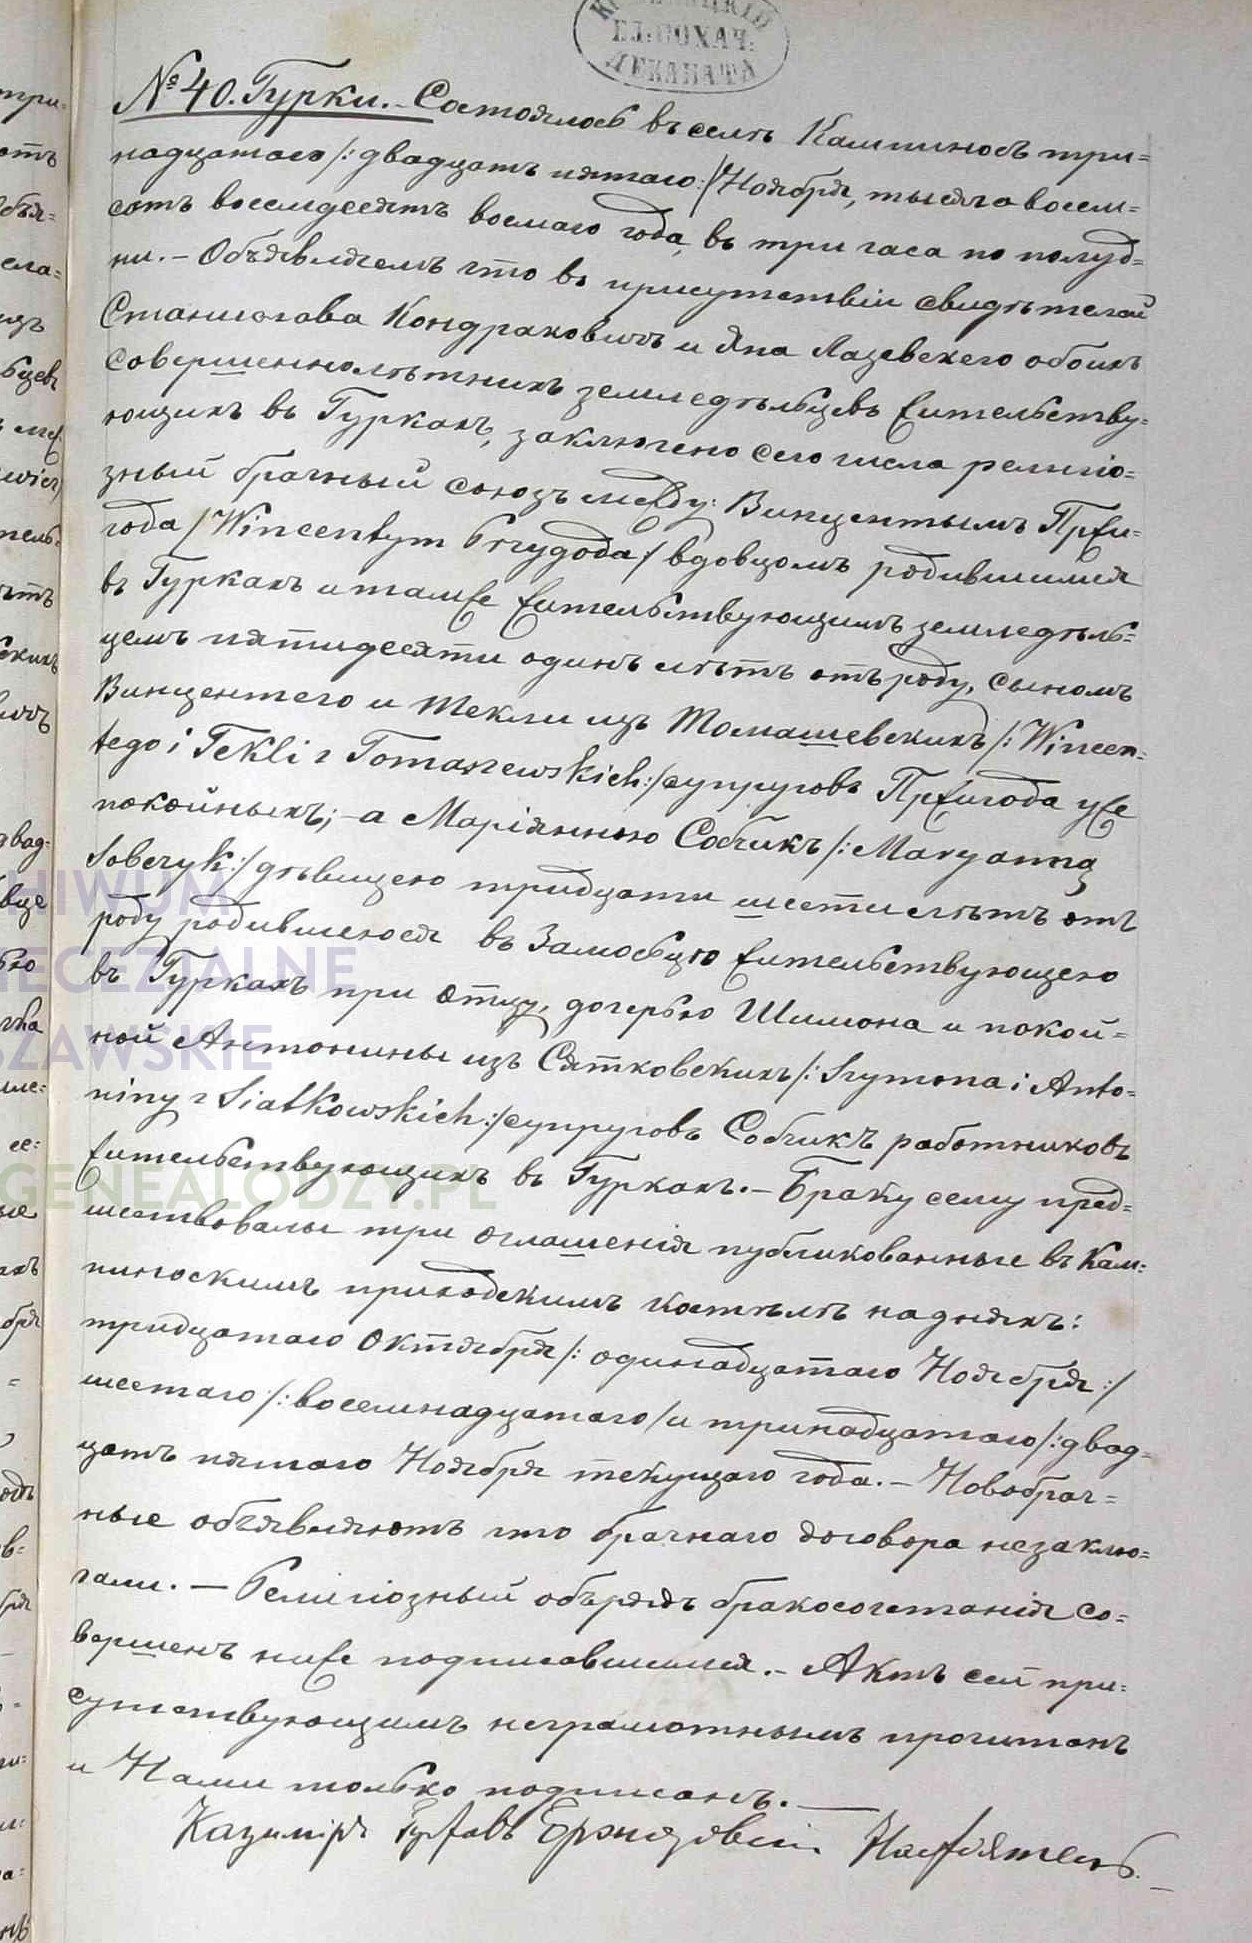 БЛ: СОХАЧ:
ДЕКАНАТА
№ 40. Гурки. – Состоялось въ селѣ Кампиносъ три=
надцатаго /: двадцать пятаго :/ Ноября, тысяча восем=
сотъ восемдесятъ восмаго года, въ три часа по полуд=
ни. – Объявляемъ что въ присутствіи свидѣтелей
Станислава Кондраковичъ и Яна Лазевскего обоихъ
совершеннолѣтнихъ земледѣльцевъ жительству=
ющихъ въ Гуркахъ, заключено сего числа религіо=
зный брачный союзъ между: Винцентымъ Пржи=
года /Wincentym Przygoda/ вдовцомъ родившимся
въ Гуркахъ и тамже жительствующимъ земледѣль=
цемъ пятидесяти одинъ лѣтъ отъ роду, сыномъ
Винцентего и Текли изъ Томашевскихъ /: Wincen=
tego i Tekli z Tomaszewskich :/ супруговъ Пржигода уже
покойныхъ; – а Маріянною Собчикъ /: Maryanną
Sobczyk :/ дѣвицею тридцати шести лѣтъ отъ
роду родившеюся въ Замосцю жительствующею
въ Гуркахъ при отцу, дочерью Шимона и покой=
ной Антонины изъ Сятковскихъ /: Szymona i Anto=
niny z Siatkowskich :/ супруговъ Собчикъ работниковъ
жительствующихъ въ Гуркахъ. – Браку сему пред=
шествовалы три оглашенія публикованные въ Кам=
пиноскимъ приходскимъ костѣлѣ на дняхъ:
тридцатаго Октября /: одинадцатаго Ноября :/
шестаго /: восемнадцатаго / и тринадцатаго /: двад=
цать пятаго Ноября текущаго года. – Новобрач=
ные объявляютъ что брачнаго договора незаклю=
чали. – Религіозный обърядъ бракосочетанія со=
вершенъ ниже подписавшимся. – Актъ сей при=
сутствующимъ неграмотнымъ прочитанъ
и Нами только подписанъ. –
Казиміръ Настоятель.
HIWUM
IECEZJALNE
SZAWSKIE
GENEALODZY.PL